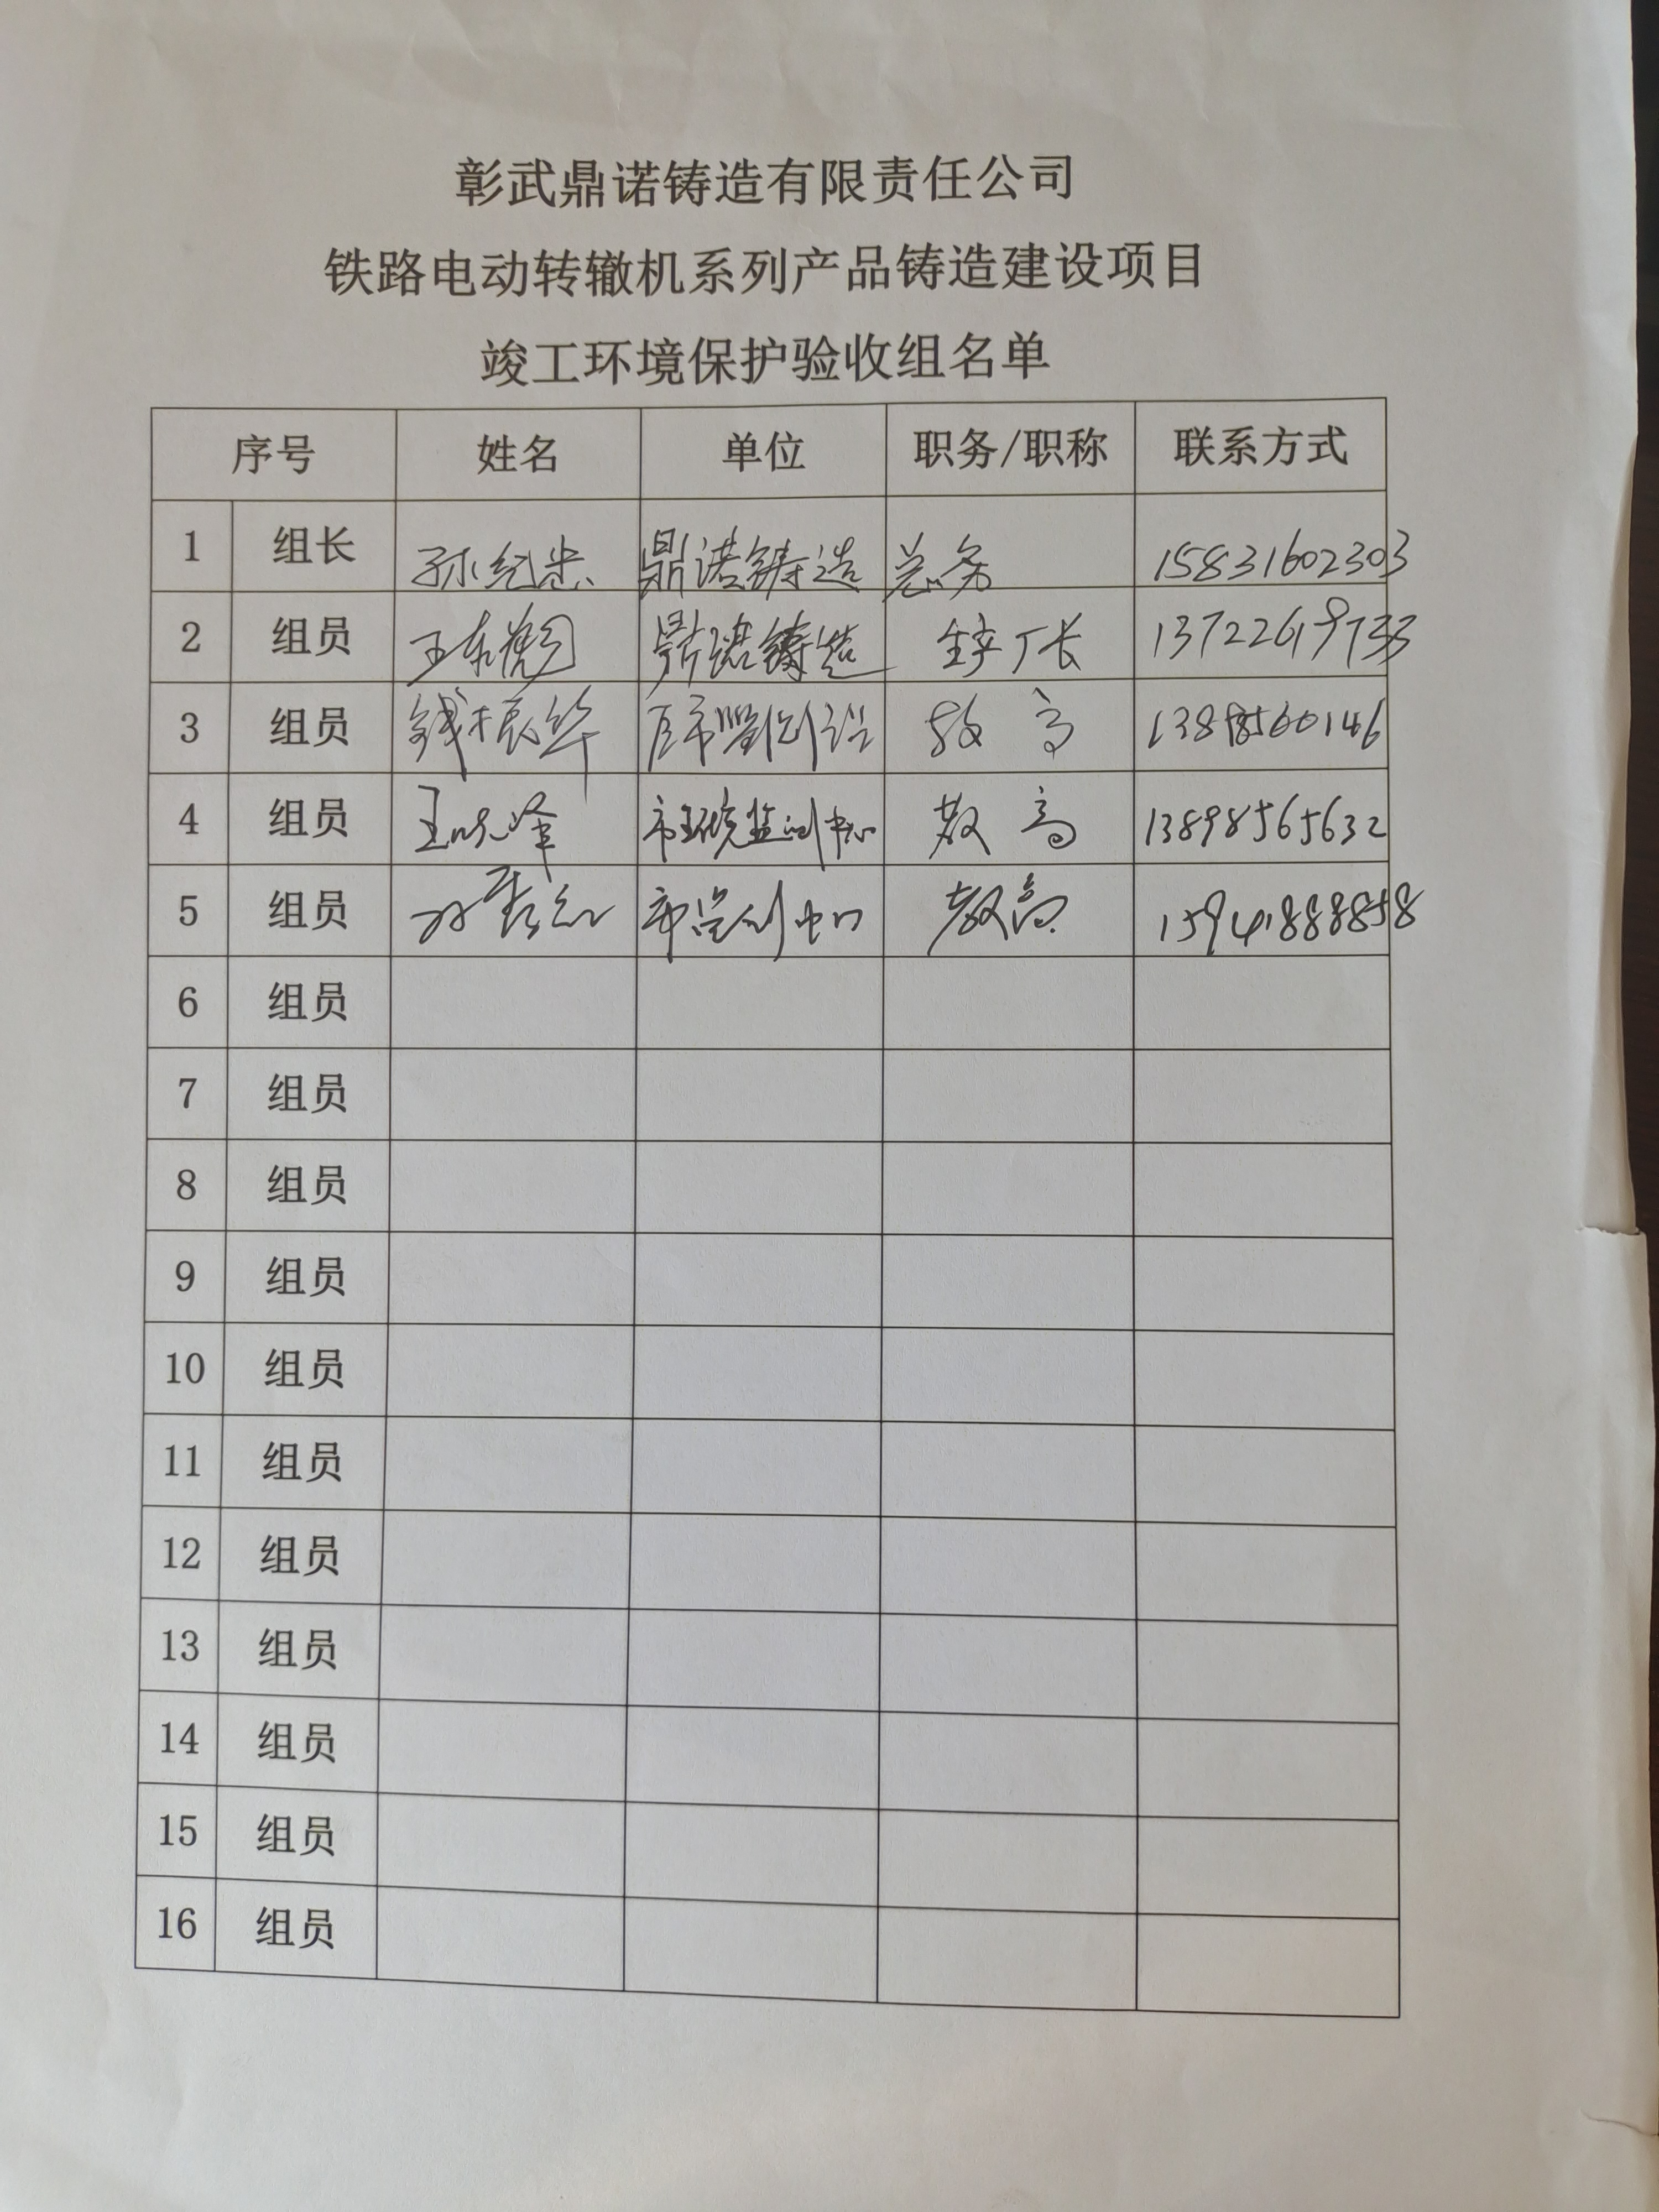 彰武鼎诺铸造有限责任公司
铁路电动转辙机系列产品铸造建设项目
竣工环境保护验收组名单
序号 姓名 单位 职务/职称 联系方式
1 组长 鼎诺铸造 15831602303
2 组员 鼎诺铸造 生产厂长
3 组员 钱振华 教高
4 组员 王晓峰 市环境监测中心 教高 13898565632
5 组员 教高 15941888858
6 组员
7 组员
8 组员
9 组员
10 组员
11 组员
12 组员
13 组员
14 组员
15 组员
16 组员